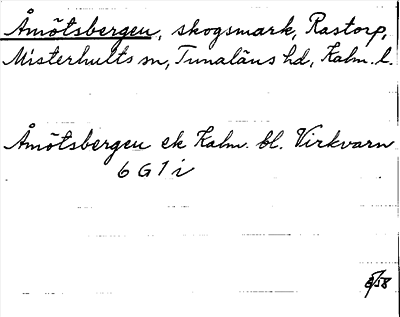 Åmötsbergen, skogsmark, Rastorp,
Misterhults sn, Tunaläns hd, Kalm. l.
Åmötsbergen ek Kalm. bl. Virkvarn
6 G 1 i